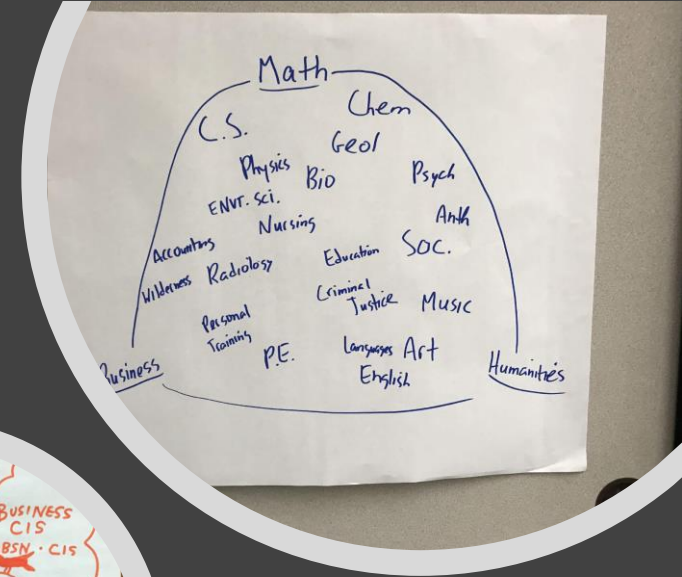 Math
Chem
C.S.
Geol
Physics
Bio
Psych
ENVT. Sci.
Nursing
Anth
Accounting
Education
Soc.
Wilderness
Radiology
Criminal
Justice
Music
Personal
Training
P.E.
Languages
Art
English
Business
Humanities
BUSINESS
CIS
BSN. CIS